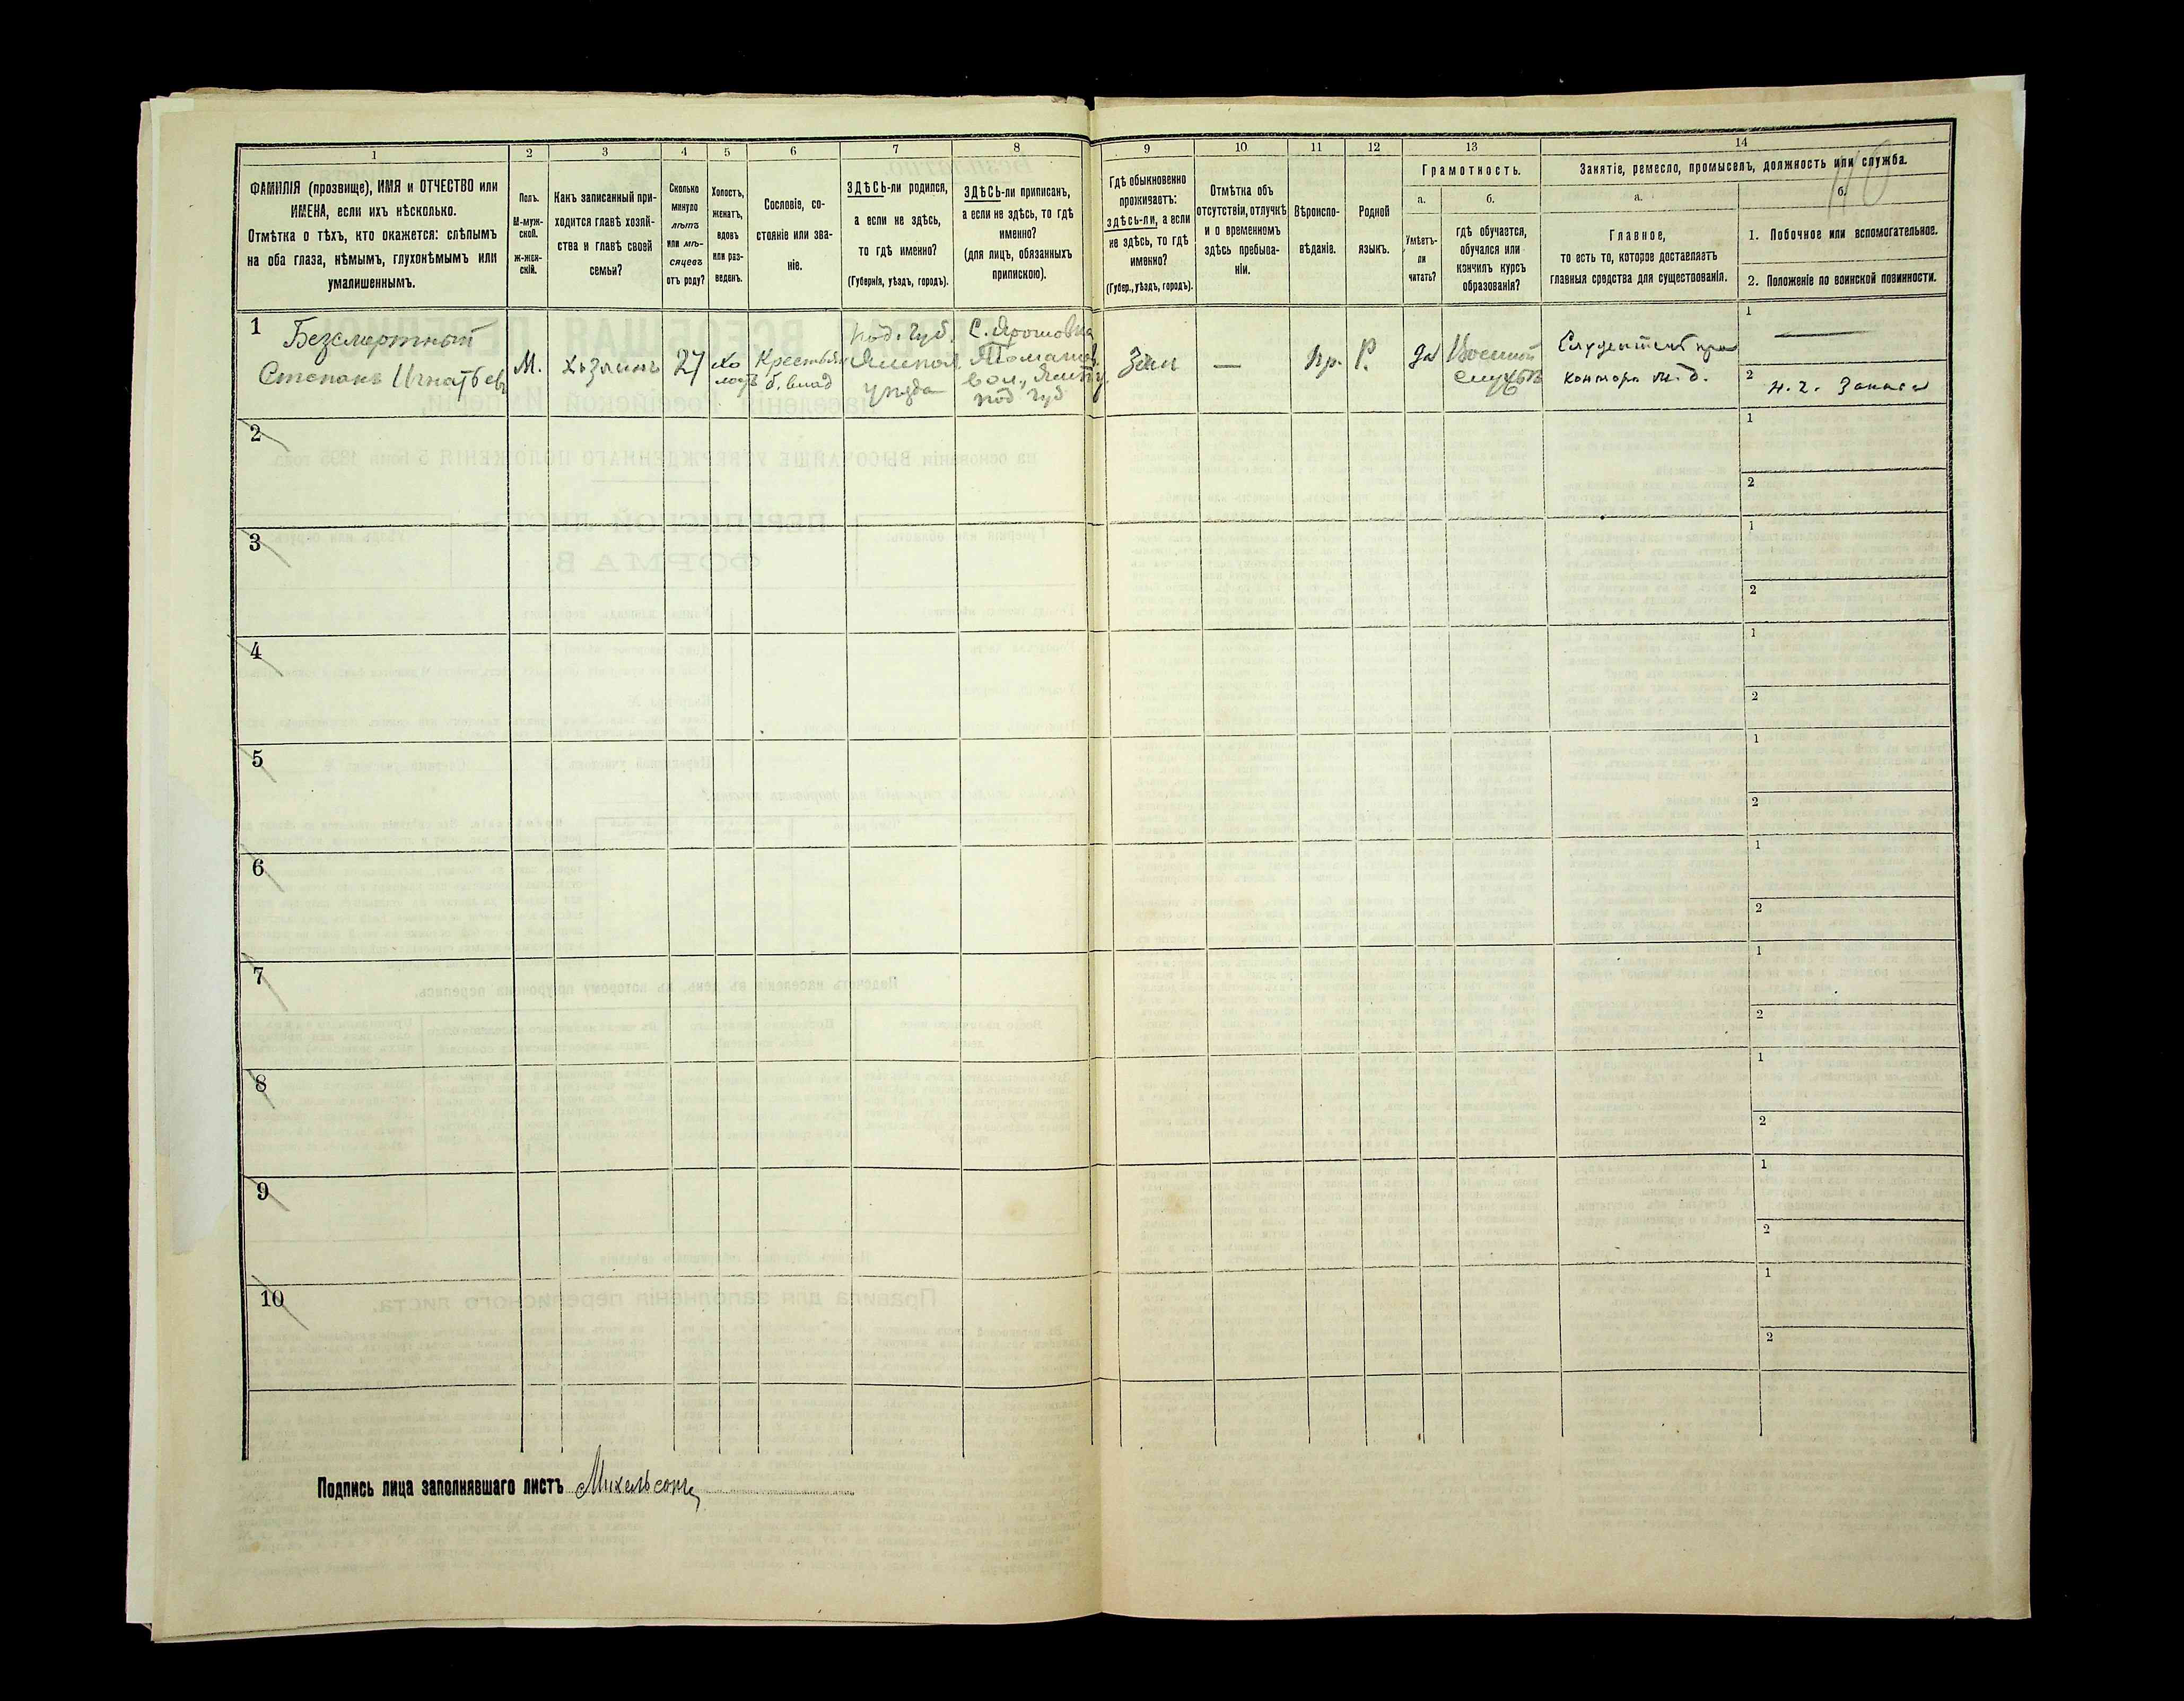 1 2 3 4 5 6 7 8 9 10 11 12 13 14
ФАМИЛІЯ (прозвище), ИМЯ и ОТЧЕСТВО или
ИМЕНА, если ихъ нѣсколько.
Отмѣтка о тѣхъ, кто окажется: слѣпымъ
на оба глаза, нѣмымъ, глухонѣмымъ или
умалишеннымъ.
Полъ.
М-муж-
ской.
ж-жен-
скій.
Какъ записанный при-
ходится главѣ хозяй-
ства и главѣ своей
семьи?
Сколько
минуло
лѣтъ
или мѣ-
сяцевъ
отъ роду?
Холостъ,
женатъ,
вдовъ
или раз-
веденъ.
Сословіе, со-
стояніе или зва-
ніе.
ЗДѢСЬ-ли родился,
а если не здѣсь,
то гдѣ именно?
(Губернія, уѣздъ, городъ).
ЗДѢСЬ-ли приписанъ,
а если не здѣсь, то гдѣ
именно?
(для лицъ, обязанныхъ
припискою).
Гдѣ обыкновенно
проживаетъ:
здѣсь-ли, а если
не здѣсь, то гдѣ
именно?
(Губер., уѣздъ, городъ).
Отмѣтка объ
отсутствіи, отлучкѣ
и о временномъ
здѣсь пребыва-
ніи.
Вѣроиспо-
вѣданіе.
Родной
языкъ.
Грамотность.
а.
Умѣетъ-
ли
читать?
б.
гдѣ обучается,
обучался или
кончилъ курсъ
образованія?
Занятіе, ремесло, промыселъ, должность или служба.
110
а.
Главное,
то есть то, которое доставляетъ
главныя средства для существованія.
б.
1. Побочное или вспомогательное.
2. Положеніе по воинской повинности.
1
Безсмертный
Степанъ Игнатьев
М.
хозяинъ
27
хо
лостъ
Крестьян
б. влад
Под. губ.
Ямпол
уѣзда
С. Ярошовка
Томашп.
вол., Ямп. у.
под губ
Здѣсь
—
Пр.
Р.
да
Военной
службѣ
контора
1 —
2 н. ч. Запаса
2
1
2
3
1
2
4
1
2
5
1
2
6
1
2
7
1
2
8
1
2
9
1
2
10
1
2
Подпись лица заполнявшаго листъ Михельсонъ